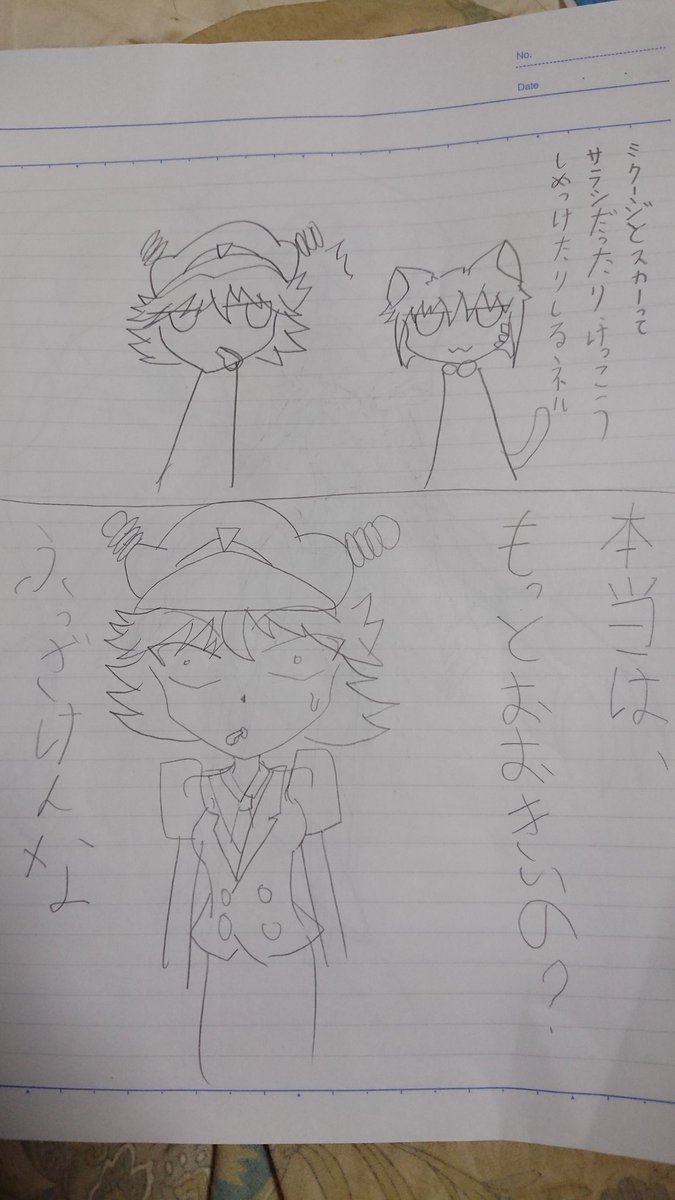 No.
Date
ミクージとスカーって
サラシだったり けっこう
しめつけたりしるネル
本当は、
もっとおおきいの?
ふっざけんな